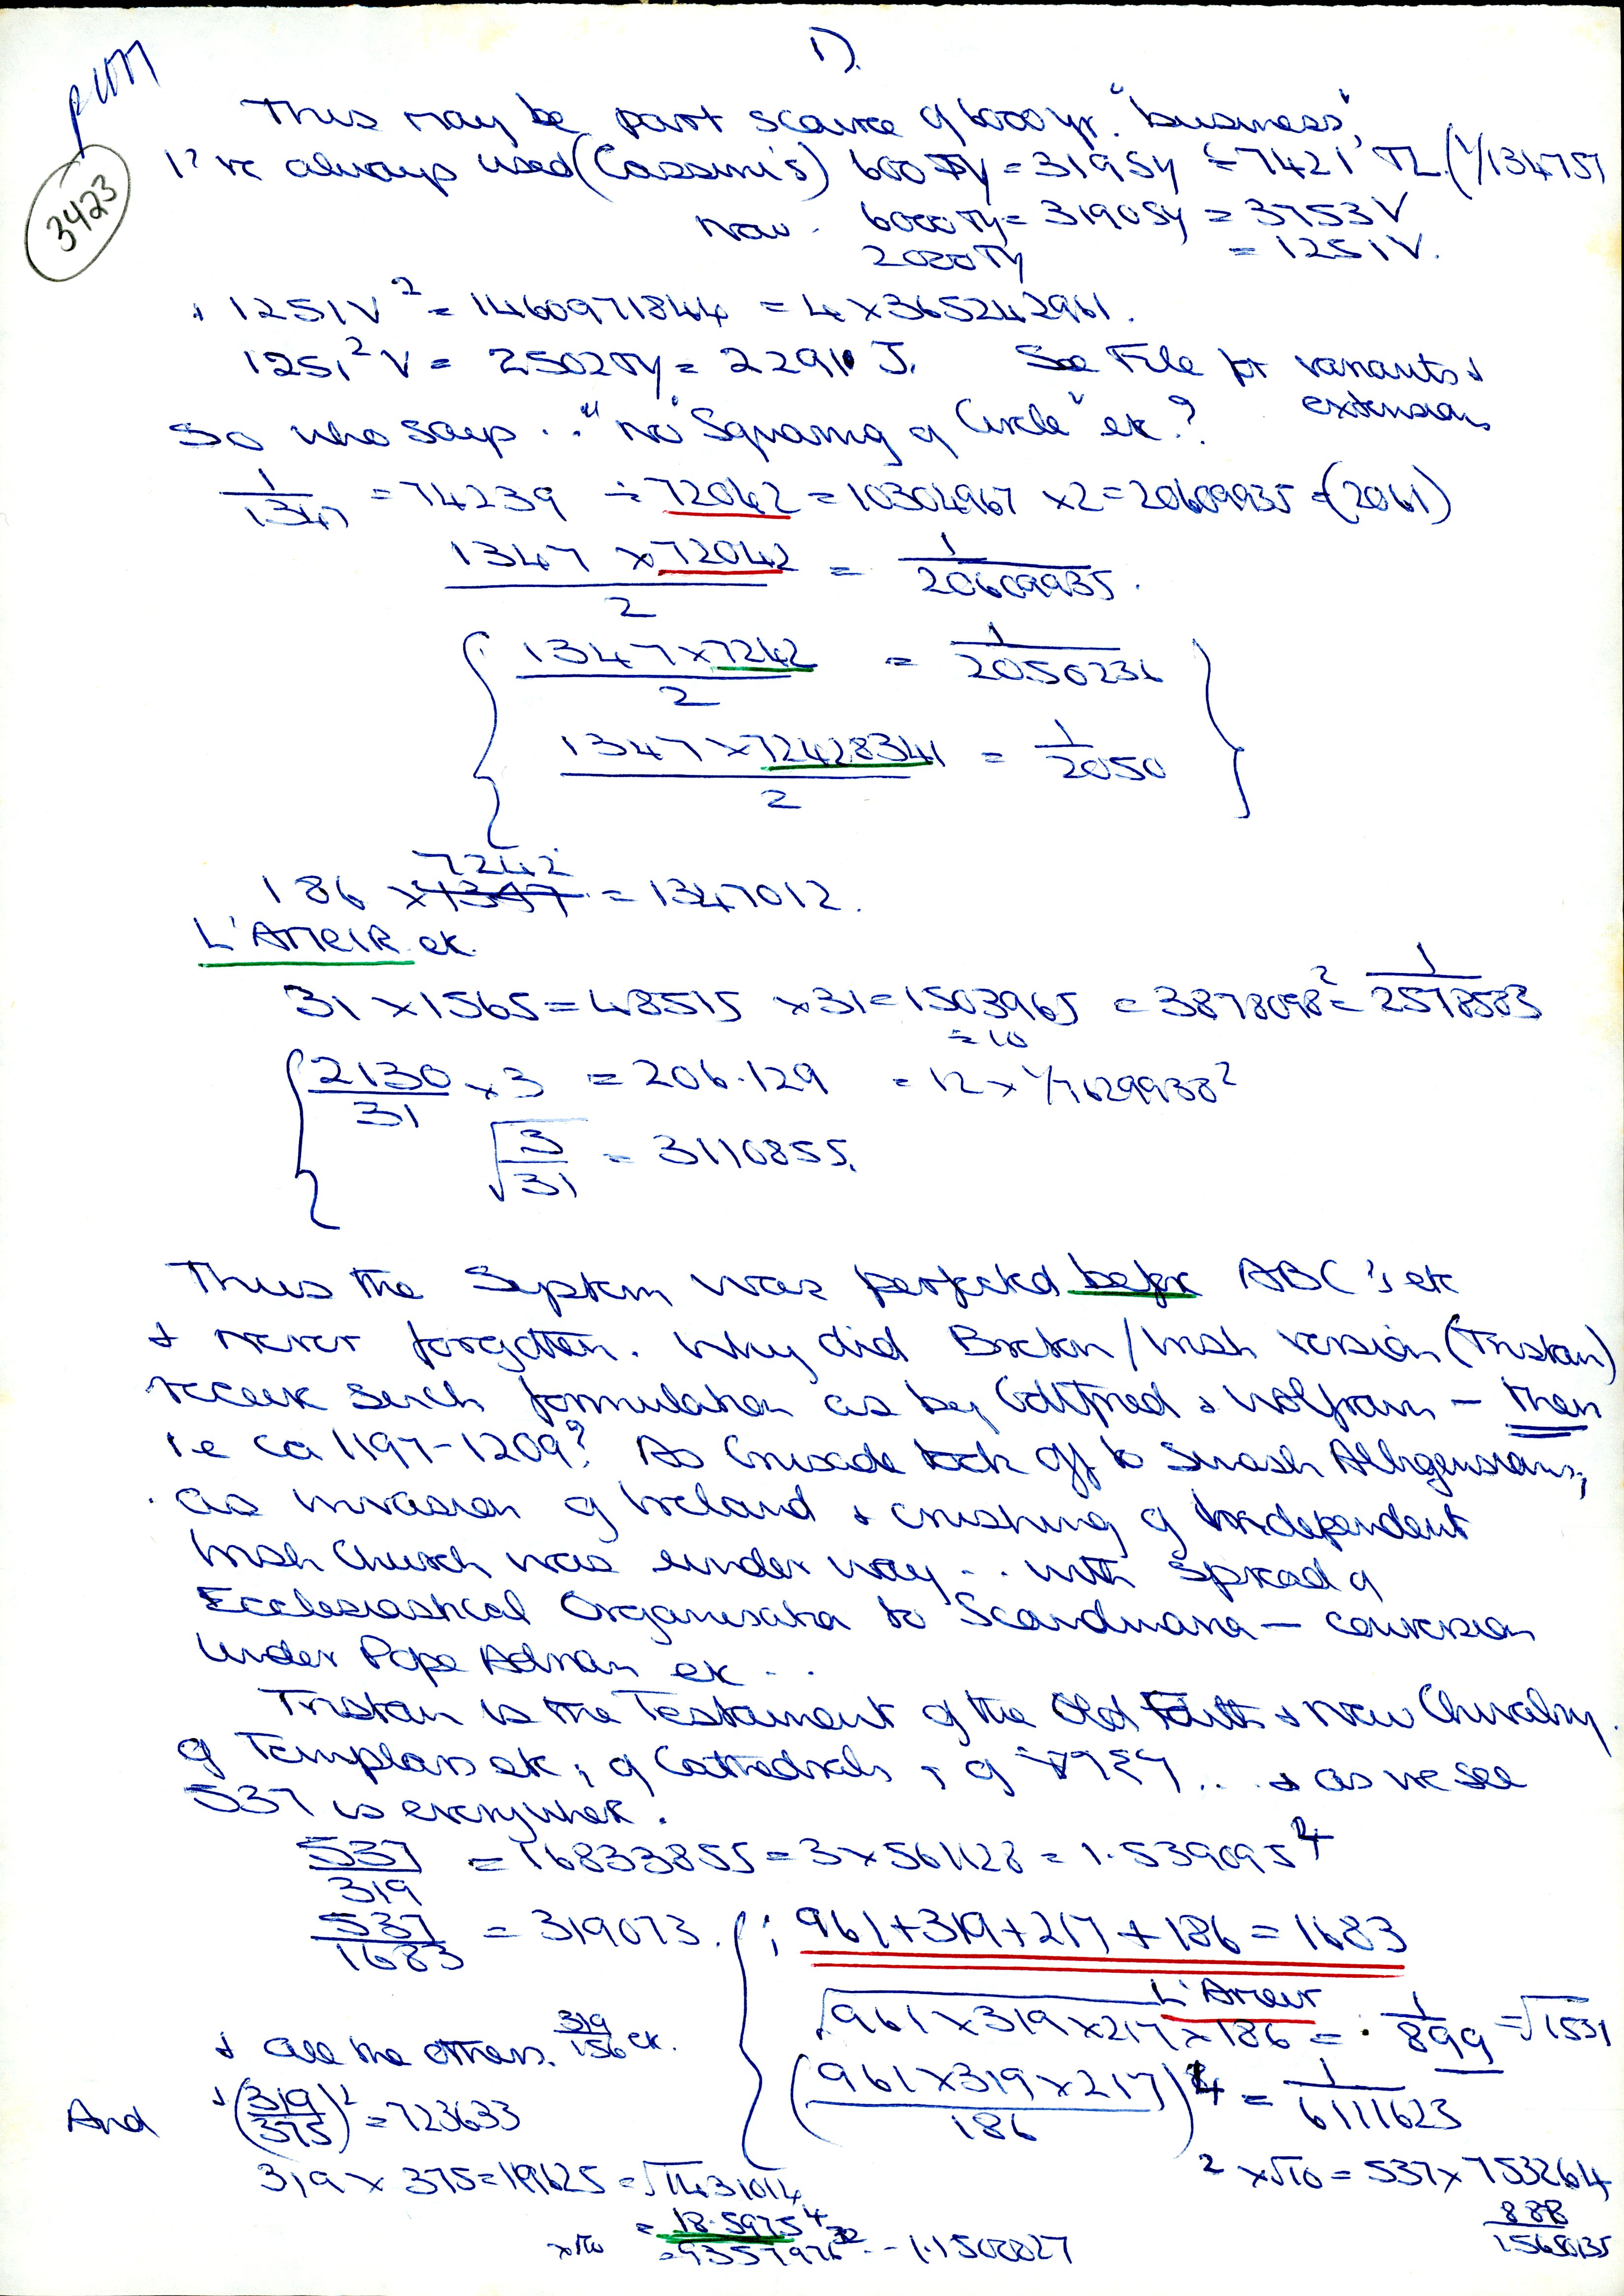 1).
3423
This may be part source of 6000 yr. "business",
I've always used (Cassini's) 600 Ty = 319 Sy = 7421' TL. (1/134751
Now. 6000 Ty = 3190 Sy = 3753 V
2000 Ty = 1251 V.
& 1251V² = 1460971844 = 4 x 365242961.
1251² V = 2502 Ty = 2291 J. See File for variants &
extensions
So who says .. "no "Squaring of Circle" etc?
1/1347 = 74239 ÷ 72042 = 10304967 x2 = 20609935 - (2061)
1347 x 72042 / 2 = 1/20609935.
1347 x 7242 / 2 = 1/20.50236
1347 x 72428341 / 2 = 1/2050
7242
186 x 1347 = 1347012.
L'ATTEIR etc.
31 x 1565 = 48515 x 31 = 1503965 = 3878098² = 1/2578583
÷ 10
2130/31 x 3 = 206.129 = 12 x 1/7629938²
√3/31 = 3110855.
Thus the System was perfected before ABC's etc
& never forgotten. Why did Breton/Irish version (Tristan)
receive such formulation as by Gottfried & Wolfram - then
i.e ca 1197-1209? As Crusade took off to smash Albigensians,
as invasion of Ireland & crushing of Independent
Irish Church was under way .. with spread of
Ecclesiastical Organisation to Scandinavia - conversion
under Pope Adrian etc ...
Tristan is the Testament of the Old Faith & New Chivalry.
of Templars etc, of Cathedrals, of ... & as we see
537 is everywhere.
537/319 = 16833855 = 3 x 561128 = 1.539095⁴
537/1683 = 319073. ; 961+319+217+186 = 1683
L'Ateur
√961 x 319 x 217 x 186 = . 1/899 = √1531
& all the others. 319/156 etc.
(961 x 319 x 217 / 186)⁴ = 1/6111623
And & (319/375)² = 723633
319 x 375 = 119625 = √1431014
² x√10 = 537 x 753264
= 18.5975⁴
888/1565035
x√10 = 9357976³² -- 1.1508827